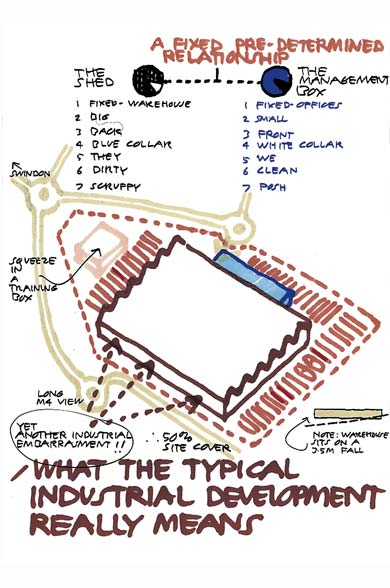 A FIXED PRE-DETERMINED
RELATIONSHIP
THE
SHED
THE
MANAGEMENT
BOX
1 FIXED-WAREHOUSE
2 BIG
3 BACK
4 BLUE COLLAR
5 THEY
6 DIRTY
7 SCRUFFY
1 FIXED-OFFICES
2 SMALL
3 FRONT
4 WHITE COLLAR
5 WE
6 CLEAN
7 POSH
SWINDON
SQUEEZE
IN
A
TRAINING
BOX
LONG
M4 VIEW
YET
ANOTHER INDUSTRIAL
EMBARRASMENT !!
∴ 50%
SITE COVER
NOTE: WAREHOUSE
SITS ON A
3.5M FALL
WHAT THE TYPICAL
INDUSTRIAL DEVELOPMENT
REALLY MEANS